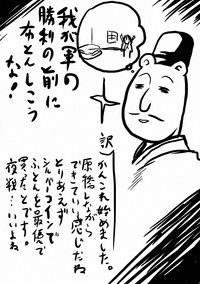 我が軍の
勝利の前に
布とんしこう
なノ!
訳
かんこれ始めました。
原稿しながら
できていい感じだね
とりあえず
シルバーコインで
ふとんを最優で
買ったとです。
夜戦…いいよね